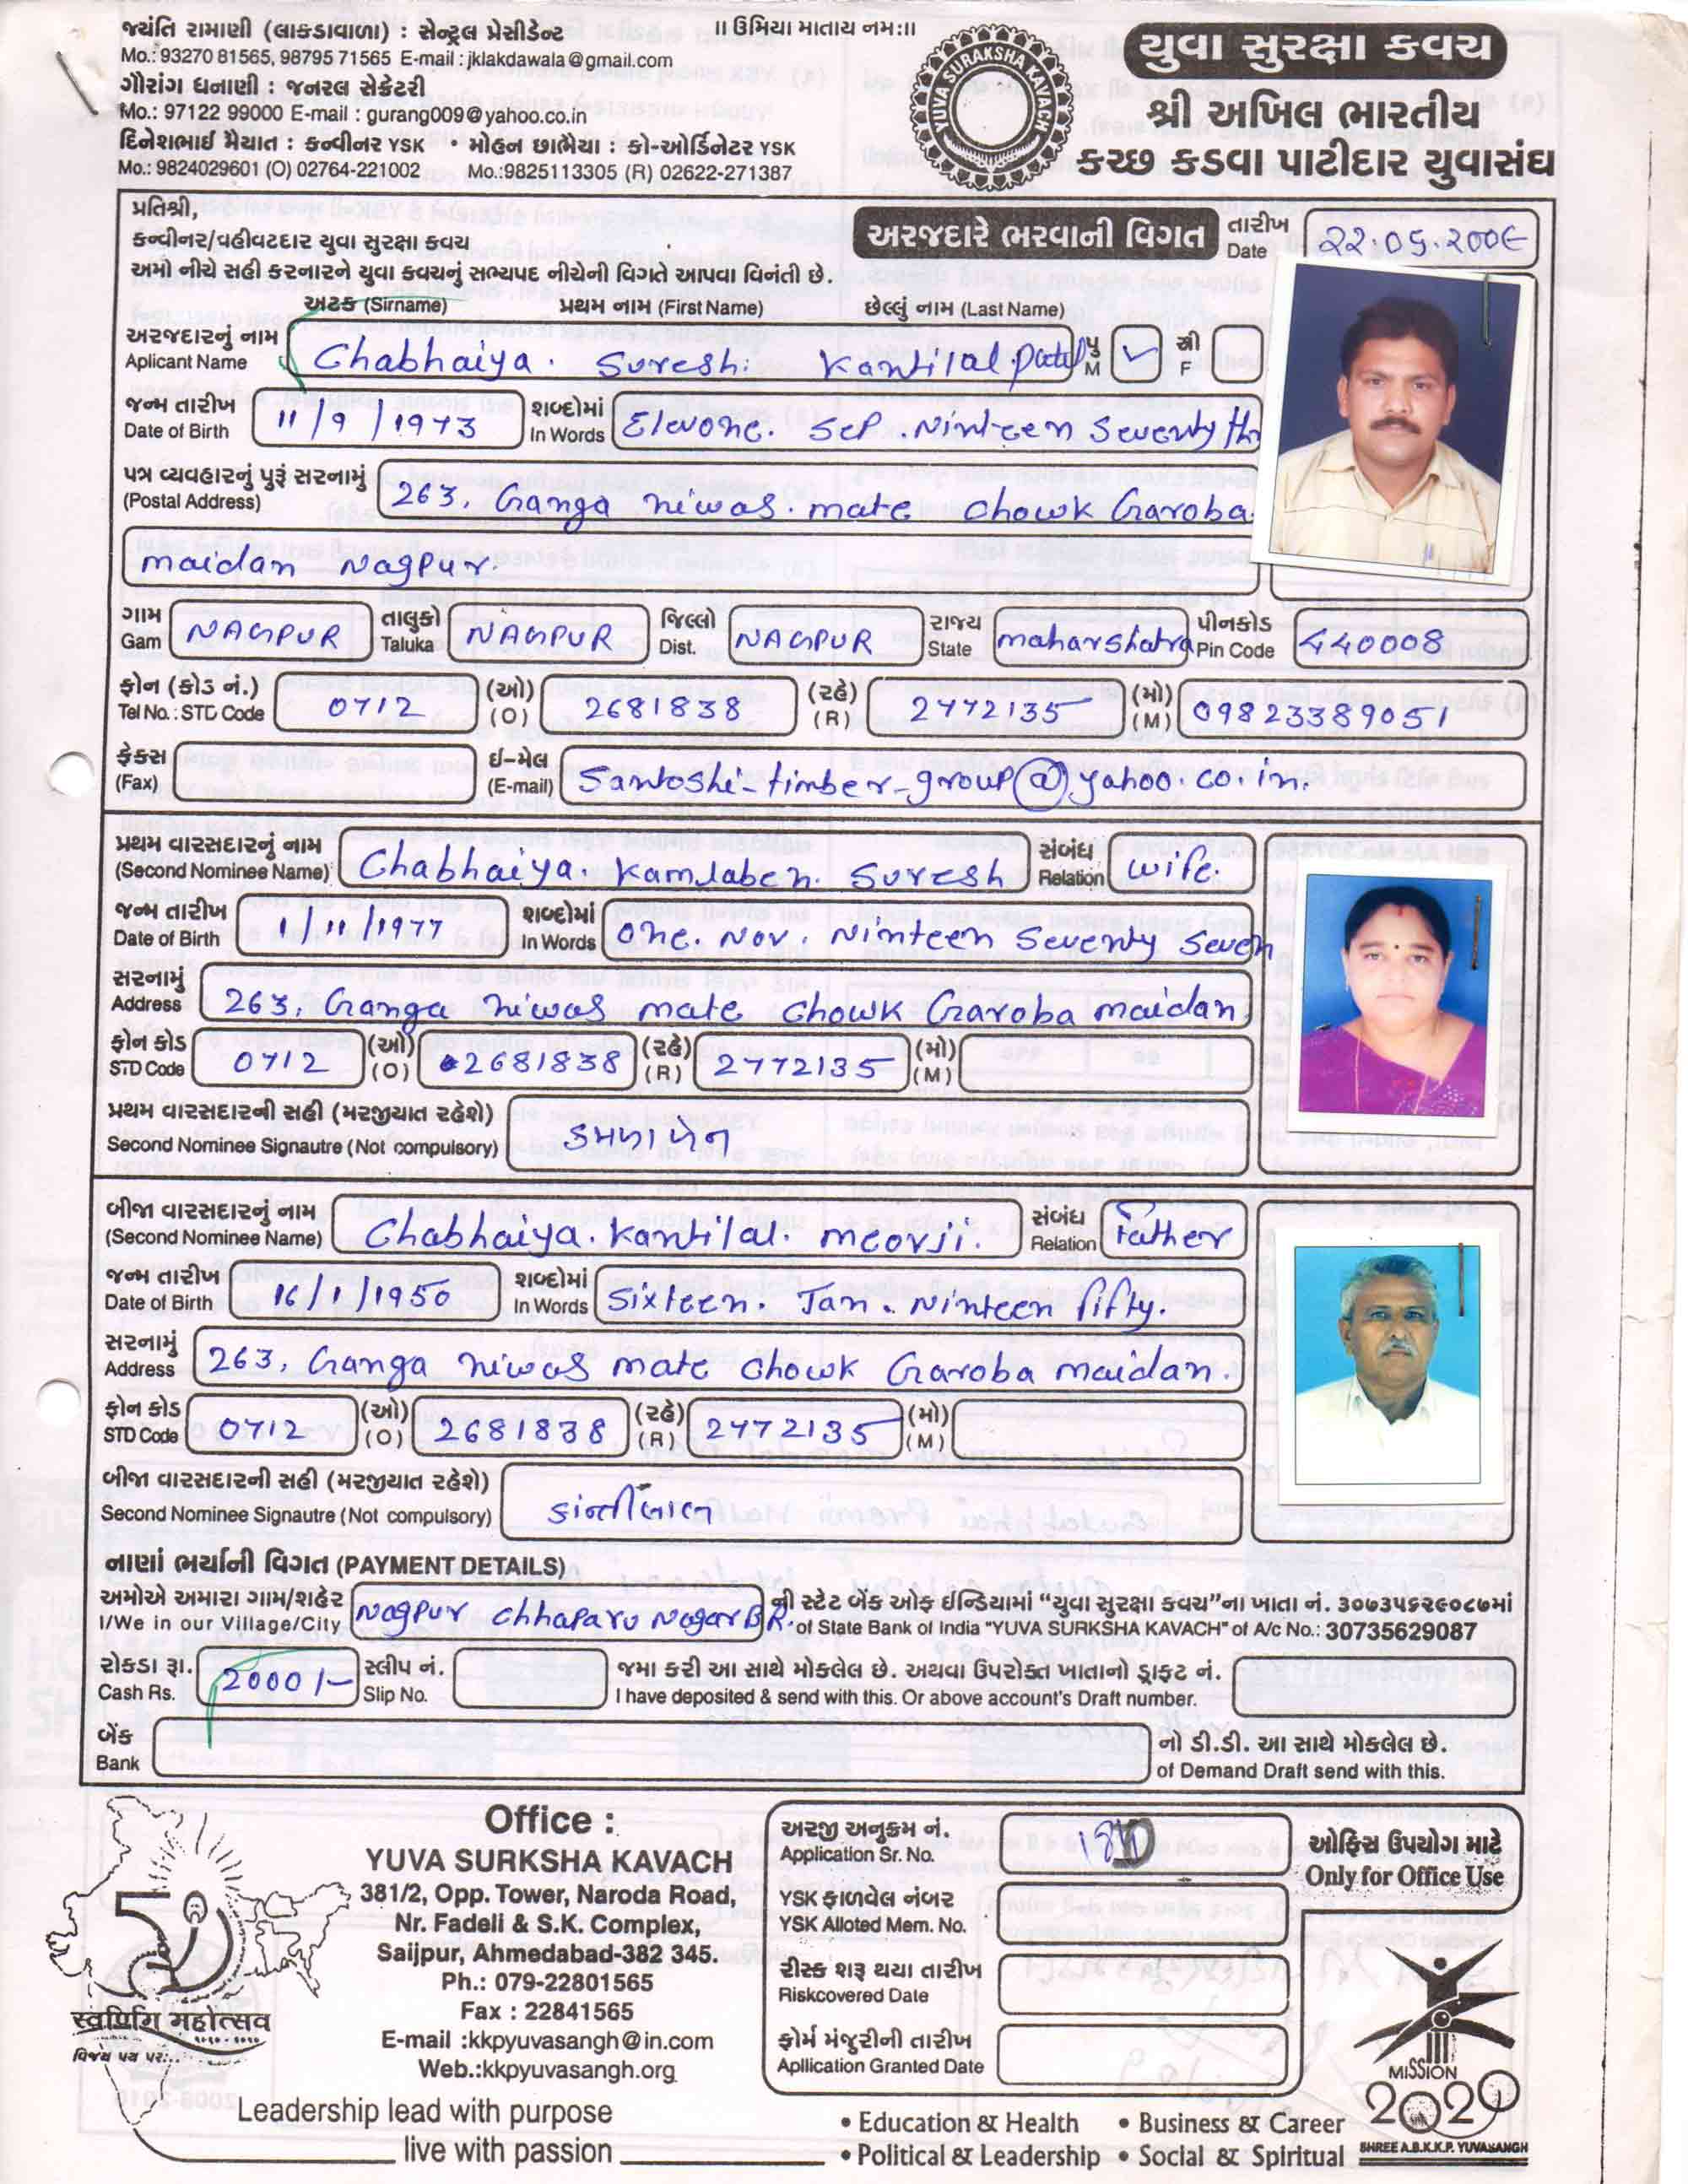 જયંતિ રામાણી (લાકડાવાળા) : સેન્ટ્રલ પ્રેસીડેન્ટ
Mo.: 93270 81565, 98795 71565 E-mail : jklakdawala@gmail.com
ગૌરાંગ ધનાણી : જનરલ સેક્રેટરી
Mo.: 97122 99000 E-mail : gurang009@yahoo.co.in
દિનેશભાઈ મૈયાત : કન્વીનર YSK • મોહન છાભૈયા : કો-ઓર્ડિનેટર YSK
Mo.: 9824029601 (O) 02764-221002 Mo.:9825113305 (R) 02622-271387
॥ ઉમિયા માતાય નમ:॥
YUVA SURAKSHA KAVACH
યુવા સુરક્ષા કવચ
શ્રી અખિલ ભારતીય
કચ્છ કડવા પાટીદાર યુવાસંઘ
પ્રતિશ્રી,
કન્વીનર/વહીવટદાર યુવા સુરક્ષા કવચ
અમો નીચે સહી કરનારને યુવા કવચનું સભ્યપદ નીચેની વિગતે આપવા વિનંતી છે.
અરજદારે ભરવાની વિગત
તારીખ Date 22.05.200
અટક (Sirname) પ્રથમ નામ (First Name) છેલ્લું નામ (Last Name)
અરજદારનું નામ
Aplicant Name Chabhaiya. Suresh. Kantilal patel પુ M ✓ સ્ત્રી F
જન્મ તારીખ
Date of Birth 11/9/1973 શબ્દોમાં In Words Elevone. Sep. Ninteen Seventy th
પત્ર વ્યવહારનું પુરૂં સરનામું
(Postal Address) 263, Ganga niwas. mate chowk Garoba
maidan Nagpur.
ગામ Gam NAGPUR તાલુકો Taluka NAGPUR જિલ્લો Dist. NAGPUR રાજ્ય State maharshatra પીનકોડ Pin Code 440008
ફોન (કોડ નં.) Tel No.: STD Code 0712 (ઓ) (O) 2681838 (રહે) (R) 2772135 (મો) (M) 09823389051
ફેક્સ (Fax) ઈ-મેલ (E-mail) Santoshi-timber-group@yahoo.co.in.
પ્રથમ વારસદારનું નામ
(Second Nominee Name) Chabhaiya. Kamlaben. Suresh સંબંધ Relation wife.
જન્મ તારીખ
Date of Birth 1/11/1977 શબ્દોમાં In Words One. Nov. Ninteen Seventy Seven
સરનામું
Address 263, Ganga niwas mate chowk Garoba maidan
ફોન કોડ STD Code 0712 (ઓ) (O) 02681838 (રહે) (R) 2772135 (મો) (M)
પ્રથમ વારસદારની સહી (મરજીયાત રહેશે)
Second Nominee Signautre (Not compulsory) કમળાબેન
બીજા વારસદારનું નામ
(Second Nominee Name) Chabhaiya. Kantilal. meorji. સંબંધ Relation Father
જન્મ તારીખ
Date of Birth 16/1/1950 શબ્દોમાં In Words Sixteen. Jan. Ninteen fifty.
સરનામું
Address 263, Ganga niwas mate chowk Garoba maidan.
ફોન કોડ STD Code 0712 (ઓ) (O) 2681838 (રહે) (R) 2772135 (મો) (M)
બીજા વારસદારની સહી (મરજીયાત રહેશે)
Second Nominee Signautre (Not compulsory) કાંતીલાલ
નાણાં ભર્યાની વિગત (PAYMENT DETAILS)
અમોએ અમારા ગામ/શહેર Nagpur chhaparu Nagar BR. ની સ્ટેટ બેંક ઓફ ઈન્ડિયામાં "યુવા સુરક્ષા કવચ"ના ખાતા નં. ૩૦૭૩૫૬૨૯૦૮૭માં
I/We in our Village/City of State Bank of India "YUVA SURKSHA KAVACH" of A/c No.: 30735629087
રોકડા રૂા. 2000/- સ્લીપ નં. જમા કરી આ સાથે મોકલેલ છે. અથવા ઉપરોક્ત ખાતાનો ડ્રાફ્ટ નં.
Cash Rs. Slip No. I have deposited & send with this. Or above account's Draft number.
બેંક નો ડી.ડી. આ સાથે મોકલેલ છે.
Bank of Demand Draft send with this.
Office :
YUVA SURKSHA KAVACH
381/2, Opp. Tower, Naroda Road,
Nr. Fadeli & S.K. Complex,
Saijpur, Ahmedabad-382 345.
Ph.: 079-22801565
Fax : 22841565
E-mail :kkpyuvasangh@in.com
Web.:kkpyuvasangh.org
Leadership lead with purpose
live with passion
અરજી અનુક્રમ નં.
Application Sr. No.
YSK ફાળવેલ નંબર
YSK Alloted Mem. No.
રીસ્ક શરૂ થયા તારીખ
Riskcovered Date
ફોર્મ મંજુરીની તારીખ
Apllication Granted Date
ઓફિસ ઉપયોગ માટે
Only for Office Use
MISSION
2020
SHREE A.B.K.K.P. YUVASANGH
• Education & Health • Business & Career
• Political & Leadership • Social & Spiritual